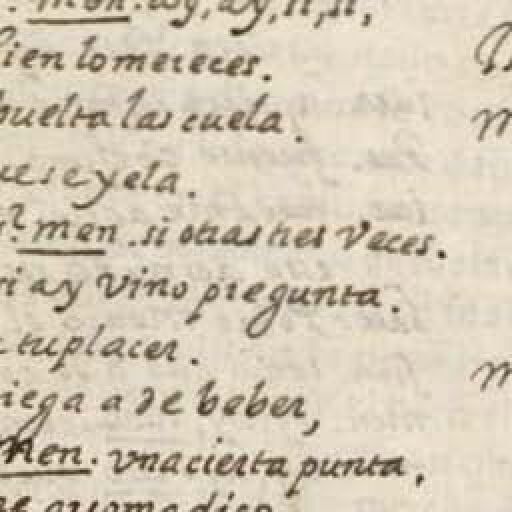 men. ay, ay, si, si,
bien lo mereces.
buelta la escuela.
se yela.
men. si otras tres veces.
si ay vino pregunta.
tu placer.
a de beber,
men. vna cierta punta,